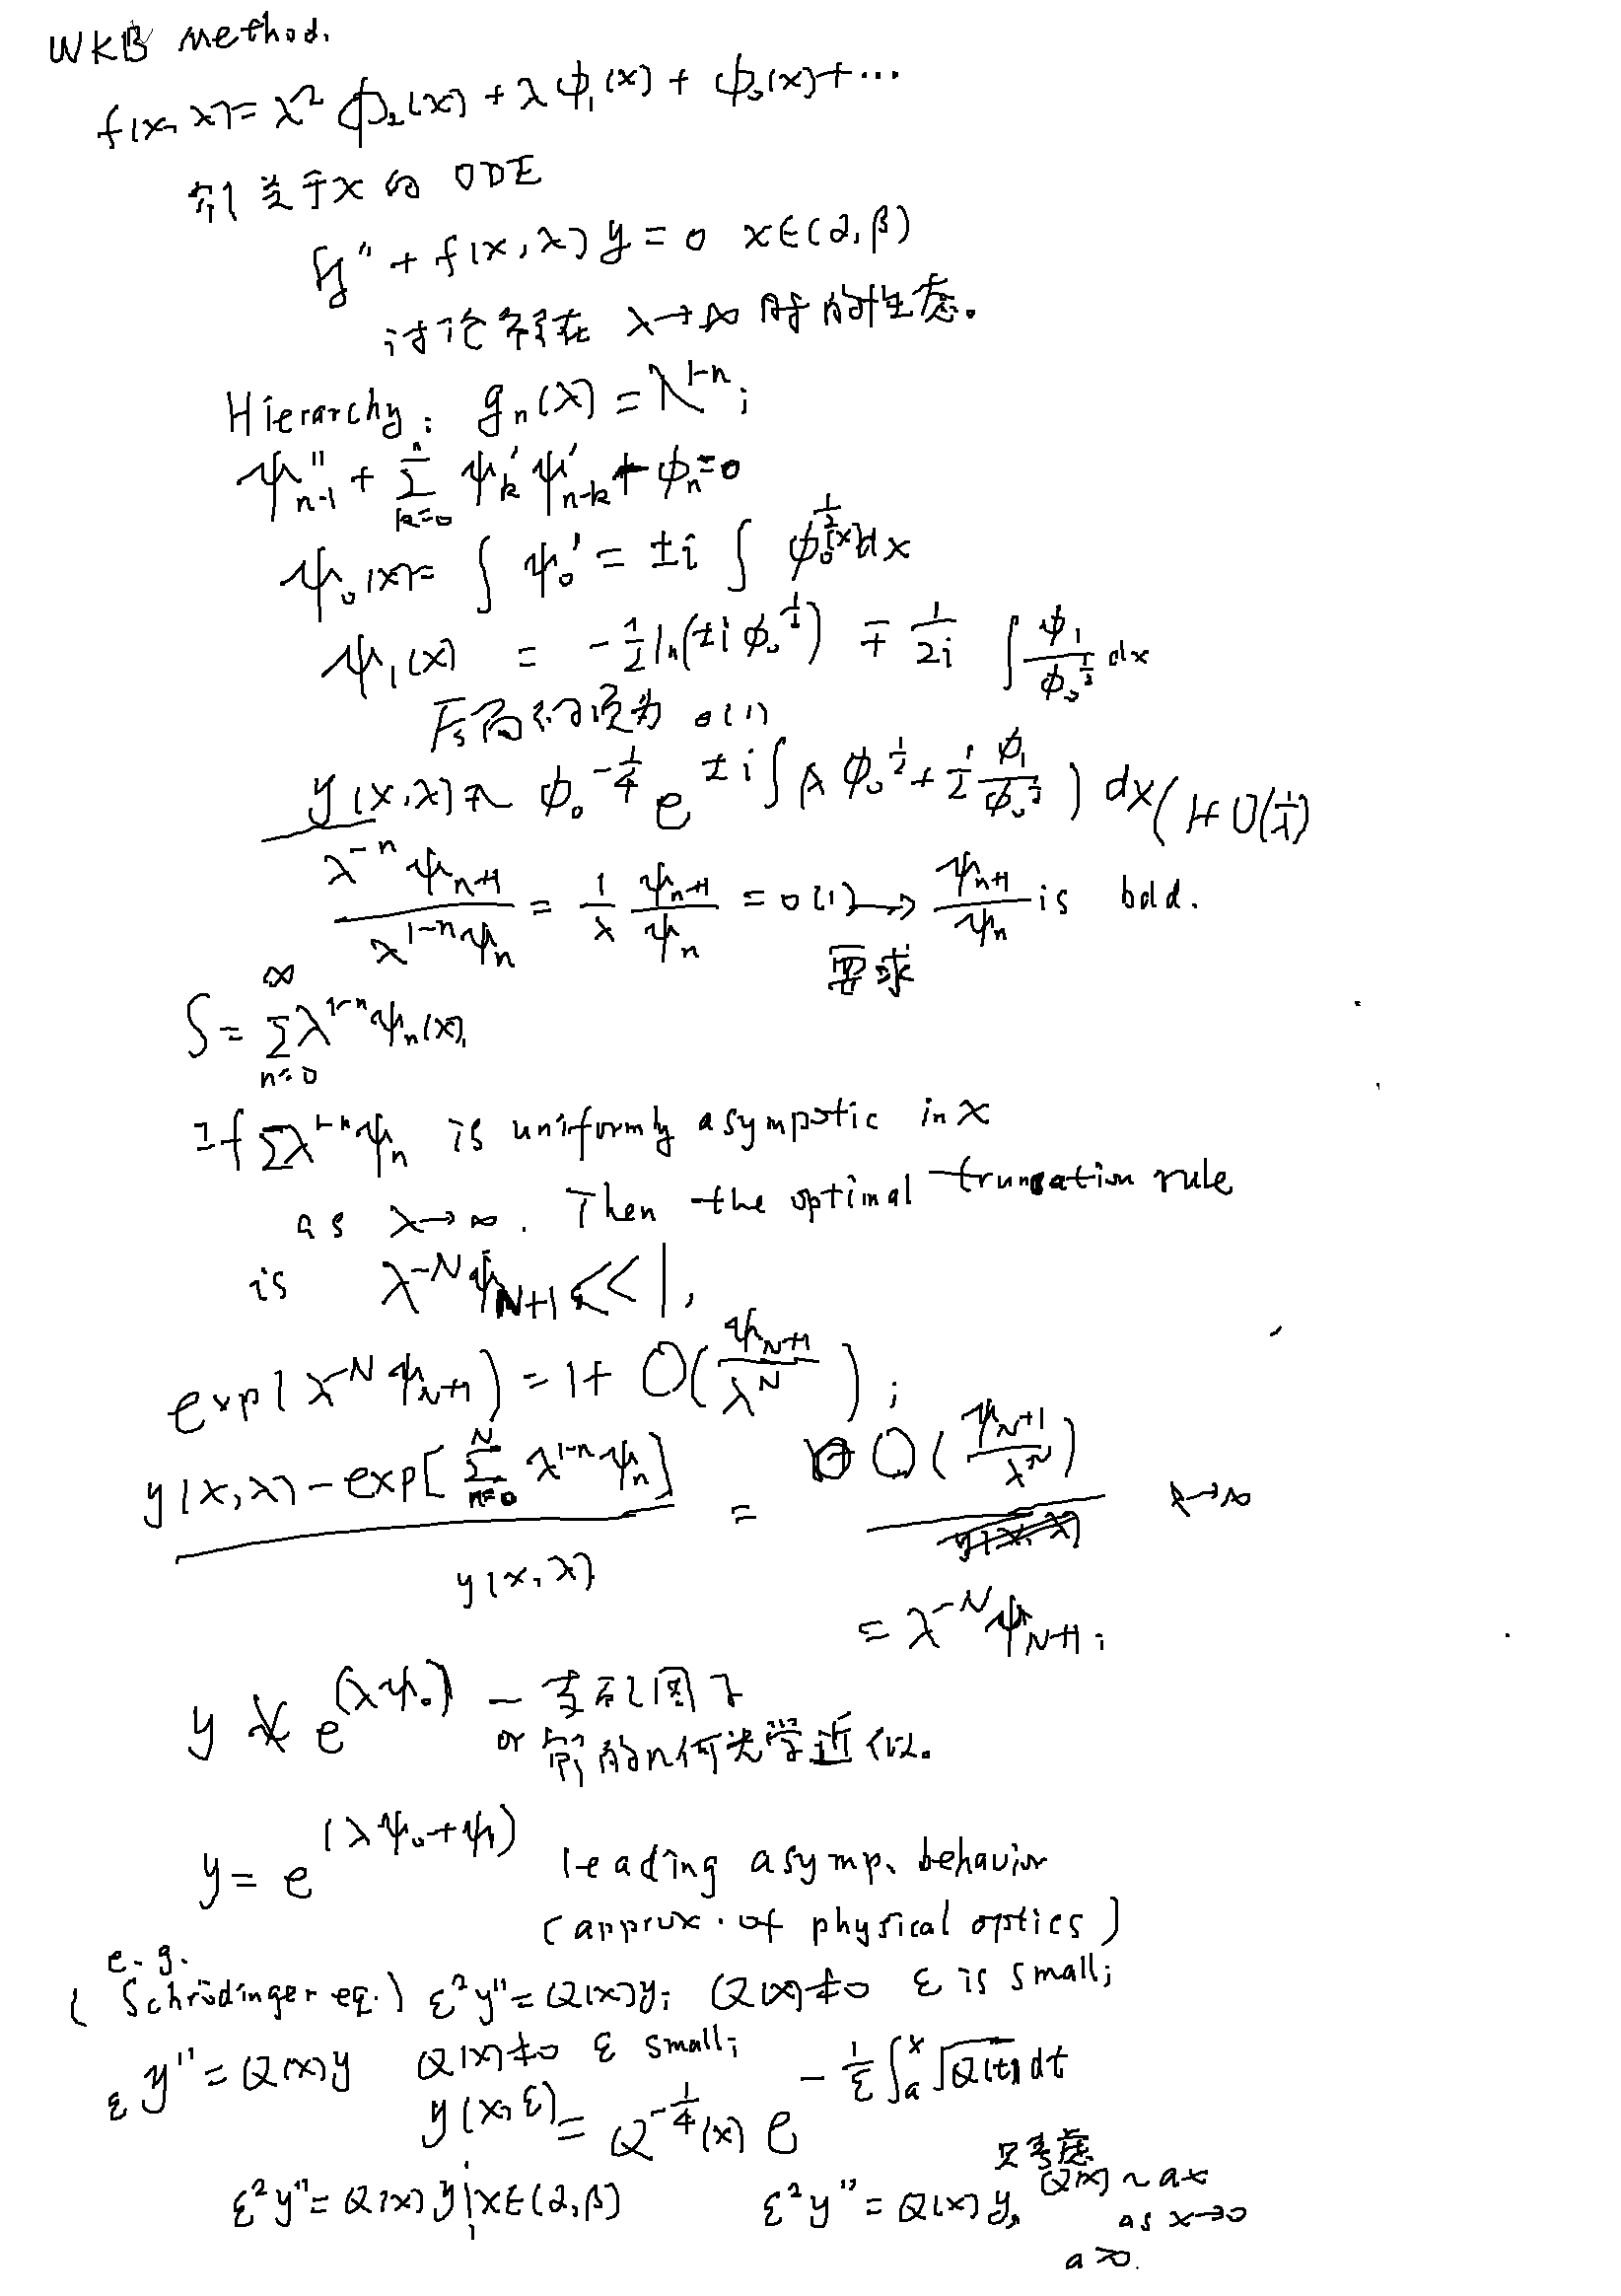 WKB method.
f(x, λ) = λ² ϕ₂(x) + λ ϕ₁(x) + ϕ₀(x) + ⋯
则关于x的 ODE
y'' + f(x, λ) y = 0 x∈(α, β)
讨论解在 λ→∞ 时的性态。
Hierarchy: gₙ(λ) = λ^{1-n};
ψ''_{n-1} + Σ_{k=0}^{n} ψ'_k ψ'_{n-k} + ϕ_n = 0
ψ₀(x) = ∫ ψ₀' = ±i ∫ ϕ₀^{1/2}(x) dx
ψ₁(x) = -½ ln(±i ϕ₀^{1/2}) ∓ 1/(2i) ∫ ϕ₁/ϕ₀^{1/2} dx
后面的项为 o(1)
y(x, λ) ~ ϕ₀^{-1/4} e^{±i∫(λ ϕ₀^{1/2} + ½ ϕ₁/ϕ₀^{1/2}) dx} (1+O(1/λ)
λ^{-n} ψ_{n+1} / λ^{1-n} ψ_n = 1/λ ψ_{n+1}/ψ_n = o(1) → ψ_{n+1}/ψ_n is bdd.
要求
S = Σ_{n=0}^{∞} λ^{1-n} ψ_n(x),
If Σλ^{1-n} ψ_n is uniformly asympotic in x
as λ→∞. Then the optimal truncation rule
is λ^{-N} ψ_{N+1} << 1,
exp(λ^{-N} ψ_{N+1}) = 1 + O(ψ_{N+1}/λ^N);
(y(x, λ) - exp[Σ_{n=0}^{N} λ^{1-n} ψ_n]) / y(x, λ) = O(ψ_{N+1}/λ^N) λ→∞
= λ^{-N} ψ_{N+1};
y ≁ e^{(λψ₀)} - 支配因子
or 解的几何光学近似。
y = e^{(λψ₀+ψ₁)} leading asymp. behavior
(approx. of physical optics)
e.g.
(Schrödinger eq.) ε² y'' = Q(x) y; Q(x) ≠ 0 ε is small;
ε y'' = Q(x) y Q(x) ≠ 0 ε small;
y(x, ε) = Q^{-1/4}(x) e^{-1/ε ∫_a^x √Q(t) dt}
只考虑
ε² y'' = Q(x) y; x∈(α, β) ε² y'' = Q(x) y, Q(x) ~ ax
as x→0
a>0.